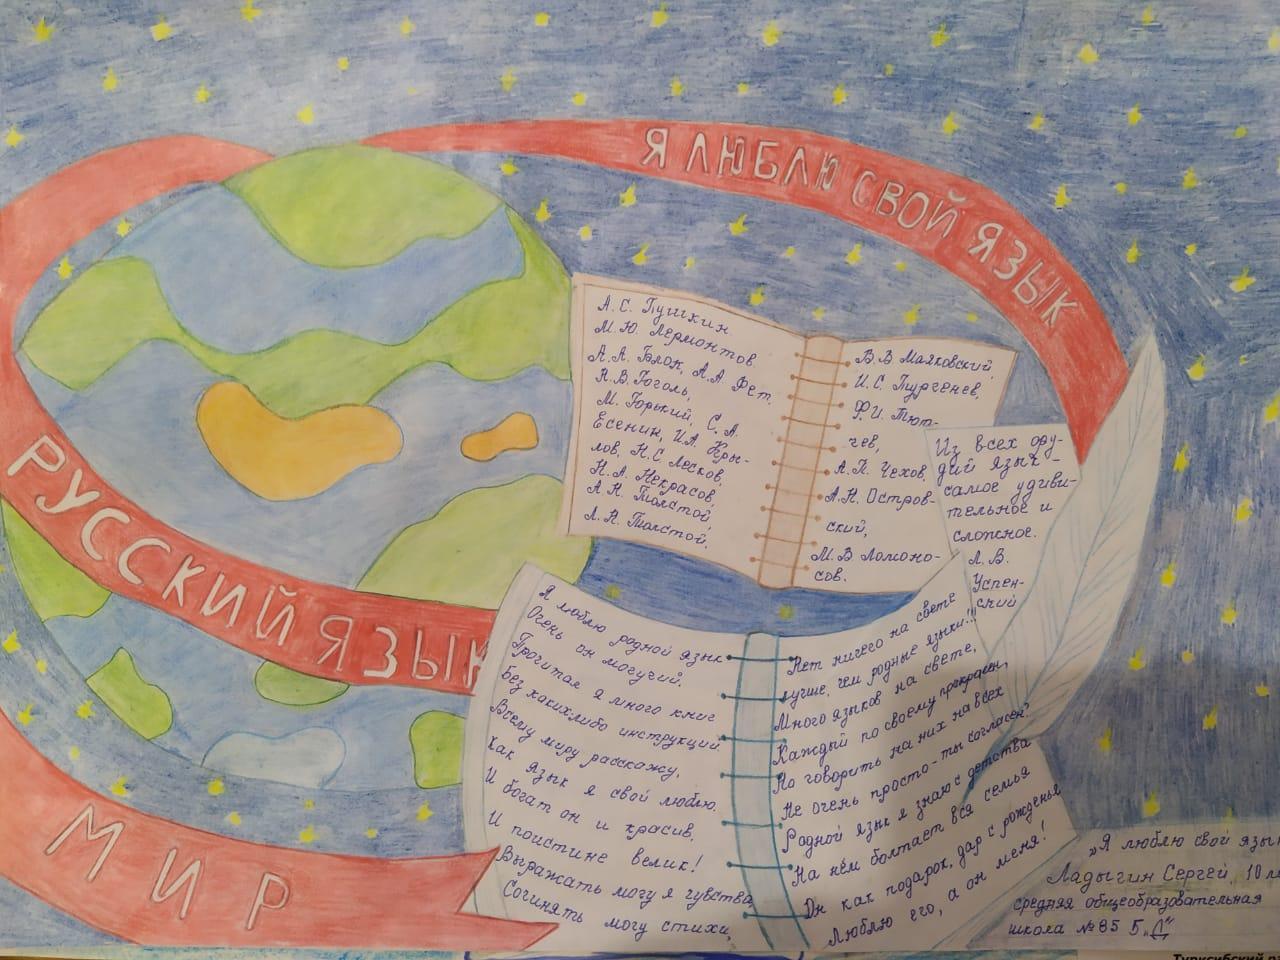 Я ЛЮБЛЮ СВОЙ ЯЗЫК
РУССКИЙ ЯЗЫК
МИР
А.С. Пушкин
М.Ю. Лермонтов
А.А. Блок, А.А. Фет,
Н.В. Гоголь,
М. Горький, С.А.
Есенин, И.А. Кры-
лов, Н.С Лесков,
Н.А. Некрасов,
А.Н. Толстой,
Л.Н. Толстой.
В.В Маяковский,
И.С. Тургенев,
Ф.И. Тют-
чев,
А.П. Чехов,
А.Н. Остров-
ский,
М.В Ломоно-
сов.
Из всех ору-
дий язык -
самое удиви-
тельное и
сложное.
Л.В.
Успен-
ский
Я люблю родной язык
Очень он могучий.
Прочитал я много книг
Без какихлибо инструкций.
Всему миру расскажу,
Как язык я свой люблю.
И богат он и красив,
И поистине велик!
Выражать могу я чувства
Сочинять могу стихи,
Нет ничего на свете
лучше, чем родные языки!!!
Много языков на свете,
Каждый по своему прекрасен,
Но говорить на них на всех
Не очень просто - ты согласен?
Родной язык я знаю с детства
На нём болтает вся семья
Он как подарок, дар с рожденья
Люблю его, а он меня!
„Я люблю свой язык
Ладыгин Сергей, 10 ле
средняя общеобразовательная
школа №85 5 „Д"